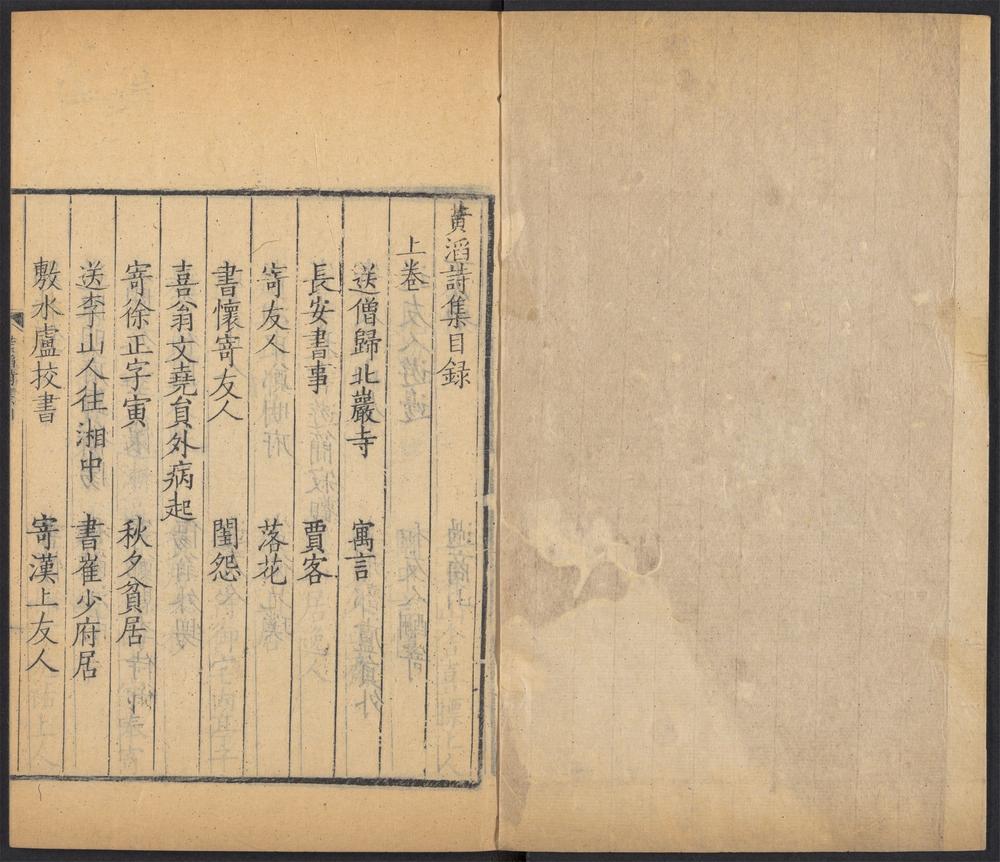 黃滔詩集目録
上卷
送僧歸北巖寺　寓言
長安書事　賈客
寄友人　落花
書懷寄友人　閨怨
喜翁文堯貟外病起
寄徐正字寅　秋夕貧居
送李山人往湘中　書崔少府居
敷水盧挍書　寄漢上友人